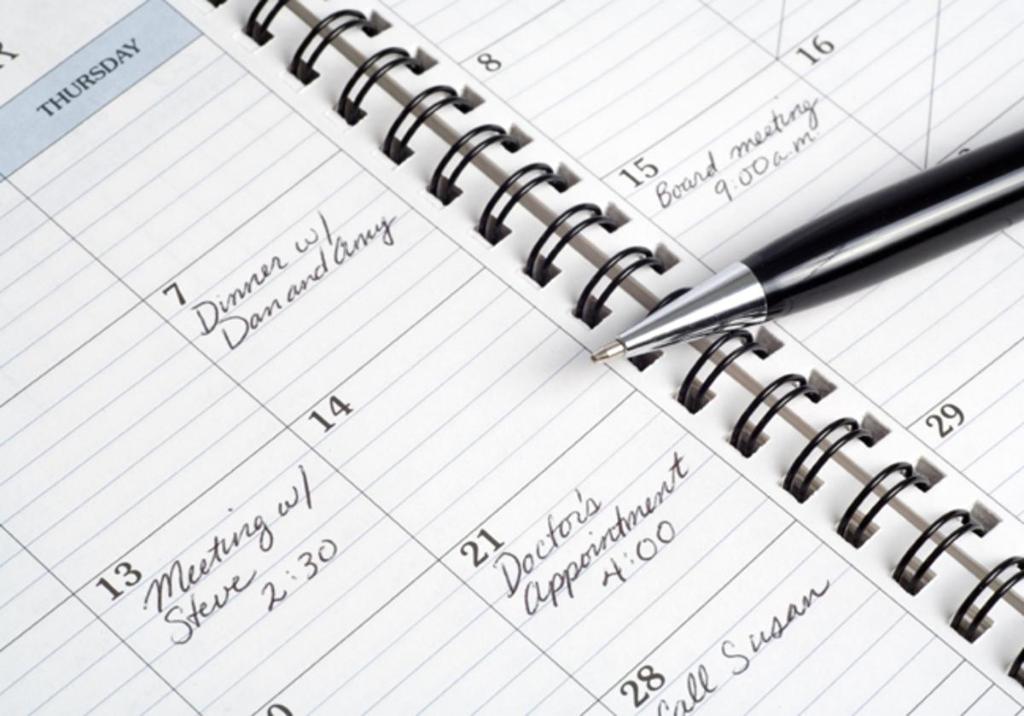 THURSDAY
8
16
15
Board meeting
9:00 a.m.
7
Dinner w/
Dan and Amy
14
13
Meeting w/
Steve
2:30
21
Doctor's
Appointment
4:00
28
Call Susan
29